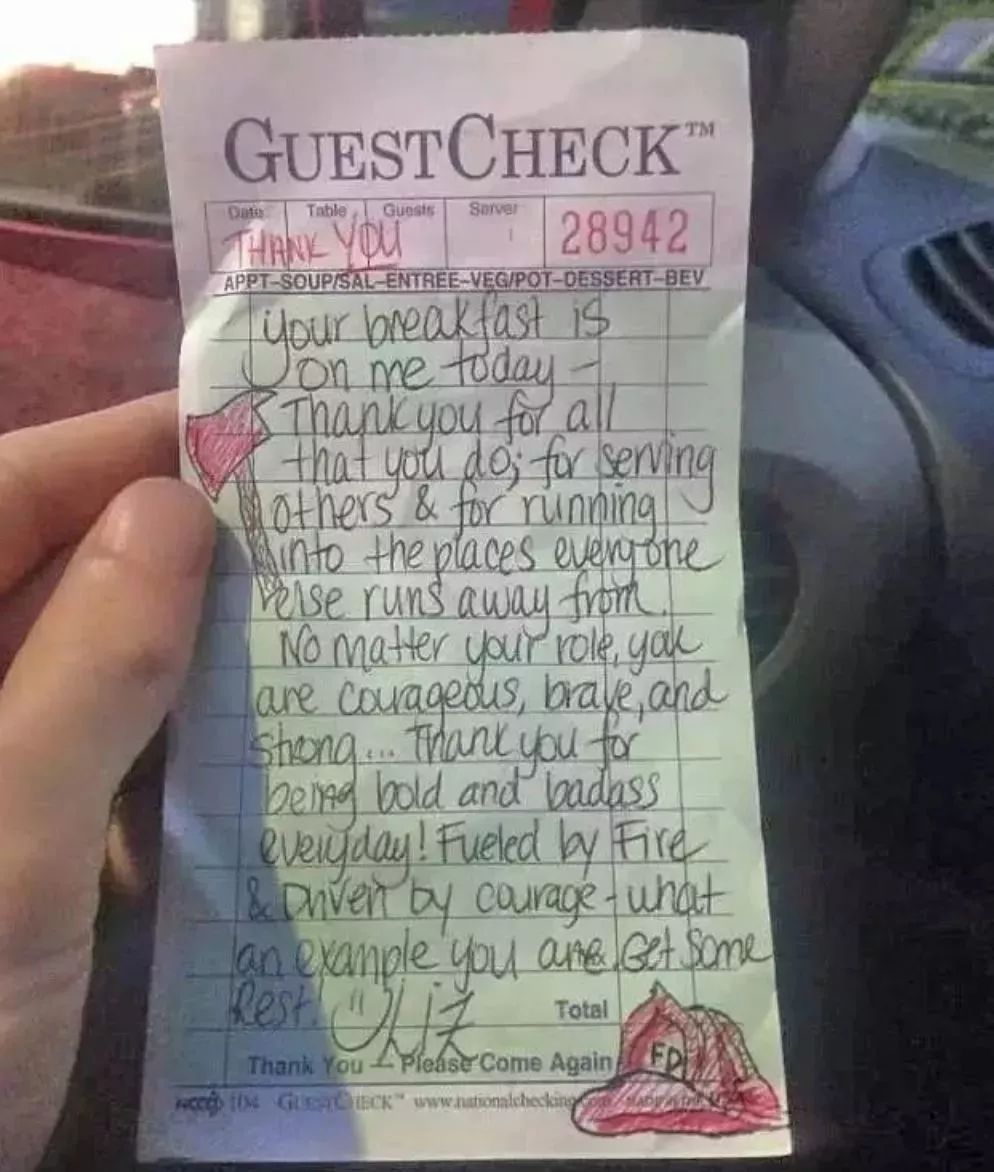 GUESTCHECK™
Date Table Guests Server
THANK YOU 28942
APPT-SOUP/SAL-ENTREE-VEG/POT-DESSERT-BEV
your breakfast is
on me today -
Thank you for all
that you do; for serving
others & for running
into the places everyone
else runs away from.
No matter your role, you
are courageous, brave, and
strong... Thank you for
being bold and badass
everyday! Fueled by Fire
& Driven by courage - what
an example you are. Get Some
Rest. Liz
Total
FD
Thank You - Please Come Again
GUESTCHECK™ www.nationalchecking